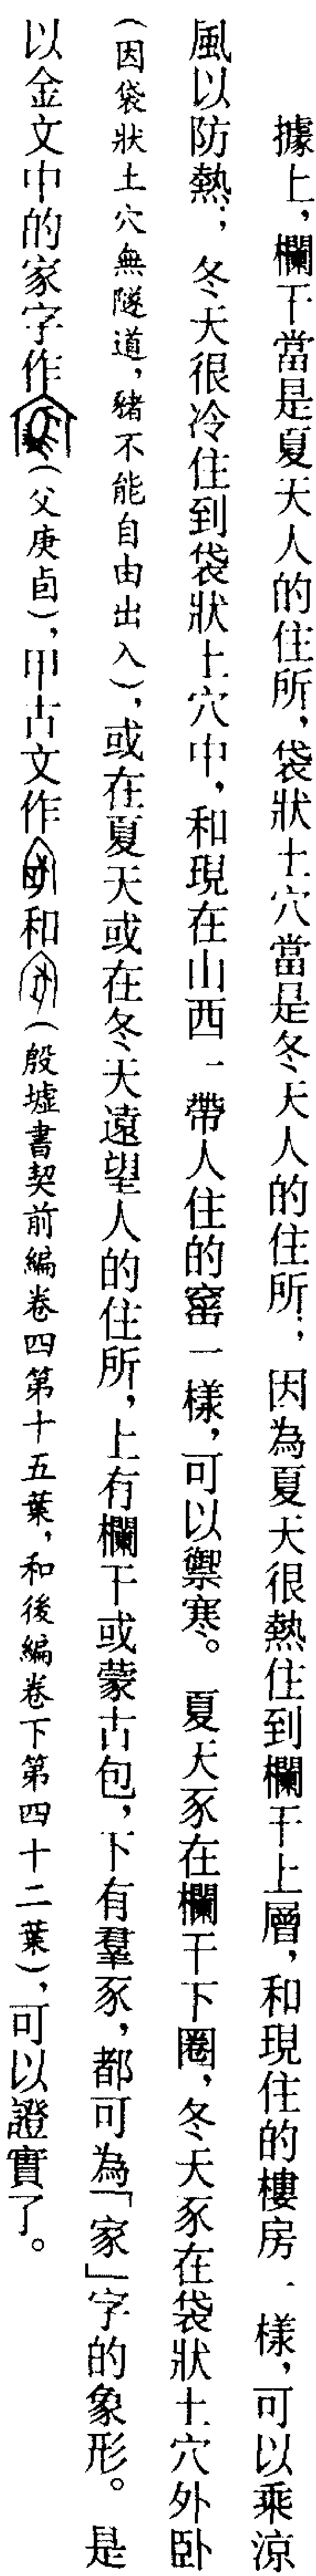 據上，欄干當是夏天人的住所，袋狀土穴當是冬天人的住所；因為夏天很熱住到欄干上層，和現住的樓房一樣，可以乘涼
風以防熱；冬天很冷住到袋狀土穴中，和現在山西一帶人住的窰一樣，可以禦寒。夏天豕在欄干下圈，冬天豕在袋狀土穴外卧
（因袋狀土穴無隧道，豬不能自由出入），或在夏天或在冬天遠望人的住所，上有欄干或蒙古包，下有羣豕，都可為「家」字的象形。是
以金文中的家字作（父庚卣），甲古文作和（殷墟書契前編卷四第十五葉，和後編卷下第四十二葉），可以證實了。